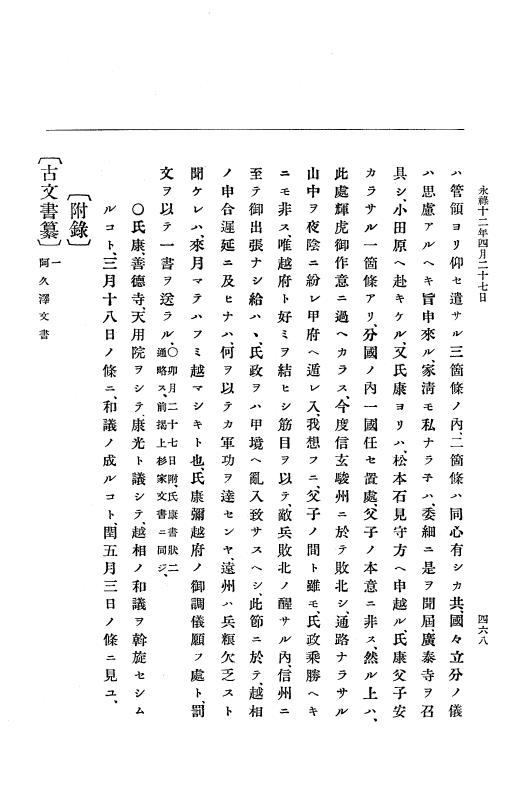 永祿十二年四月二十七日
四六八
ハ管領ヨリ仰セ遣サル三箇條ノ內、二箇條ハ同心有シカ共、國々立分ノ儀
ハ思慮アルヘキ旨申來ル、家清モ私ナラテハ、委細ニ是ヲ聞屆、廣泰寺ヲ召
具シ、小田原ヘ赴キケル、又氏康ヨリハ、松本石見守方ヘ申越ル、氏康父子安
カラサル一箇條アリ、分國ノ內一國任セ置處、父子ノ本意ニ非ス、然ル上ハ、
此處輝虎御作意ニ過ヘカラス、今度信玄駿州ニ於テ敗北シ、通路ナラサル
山中ヲ夜陰ニ紛レ甲府ヘ遁レ入、我想フニ、父子ノ間ト雖モ、氏政乘勝ヘキ
ニモ非ス、唯越府ト好ミヲ結ヒシ筋目ヲ以テ、敵兵敗北ノ醒サル內、信州ニ
至テ御出張ナシ給ハヽ、氏政ヲハ甲境ヘ亂入致サスヘシ、此節ニ於テ、越相
ノ申合遲延ニ及ヒナハ、何ヲ以テカ軍功ヲ達センヤ、遠州ハ兵粮欠乏スト
聞ケレハ、來月マテハフミ越マシキト也、氏康彌越府ノ御調儀願フ處ト、罰
文ヲ以テ一書ヲ送ラル、〇卯月二十七日附、氏康書狀二
通略ス、前揭上杉家文書ニ同ジ、
〇氏康、善德寺、天用院ヲシテ、康光ト議シテ、越相ノ和議ヲ斡旋セシム
ルコト、三月十八日ノ條ニ、和議ノ成ルコト、閏五月三日ノ條ニ見ユ、
〔附錄〕
〔古文書纂〕一 阿久澤文書